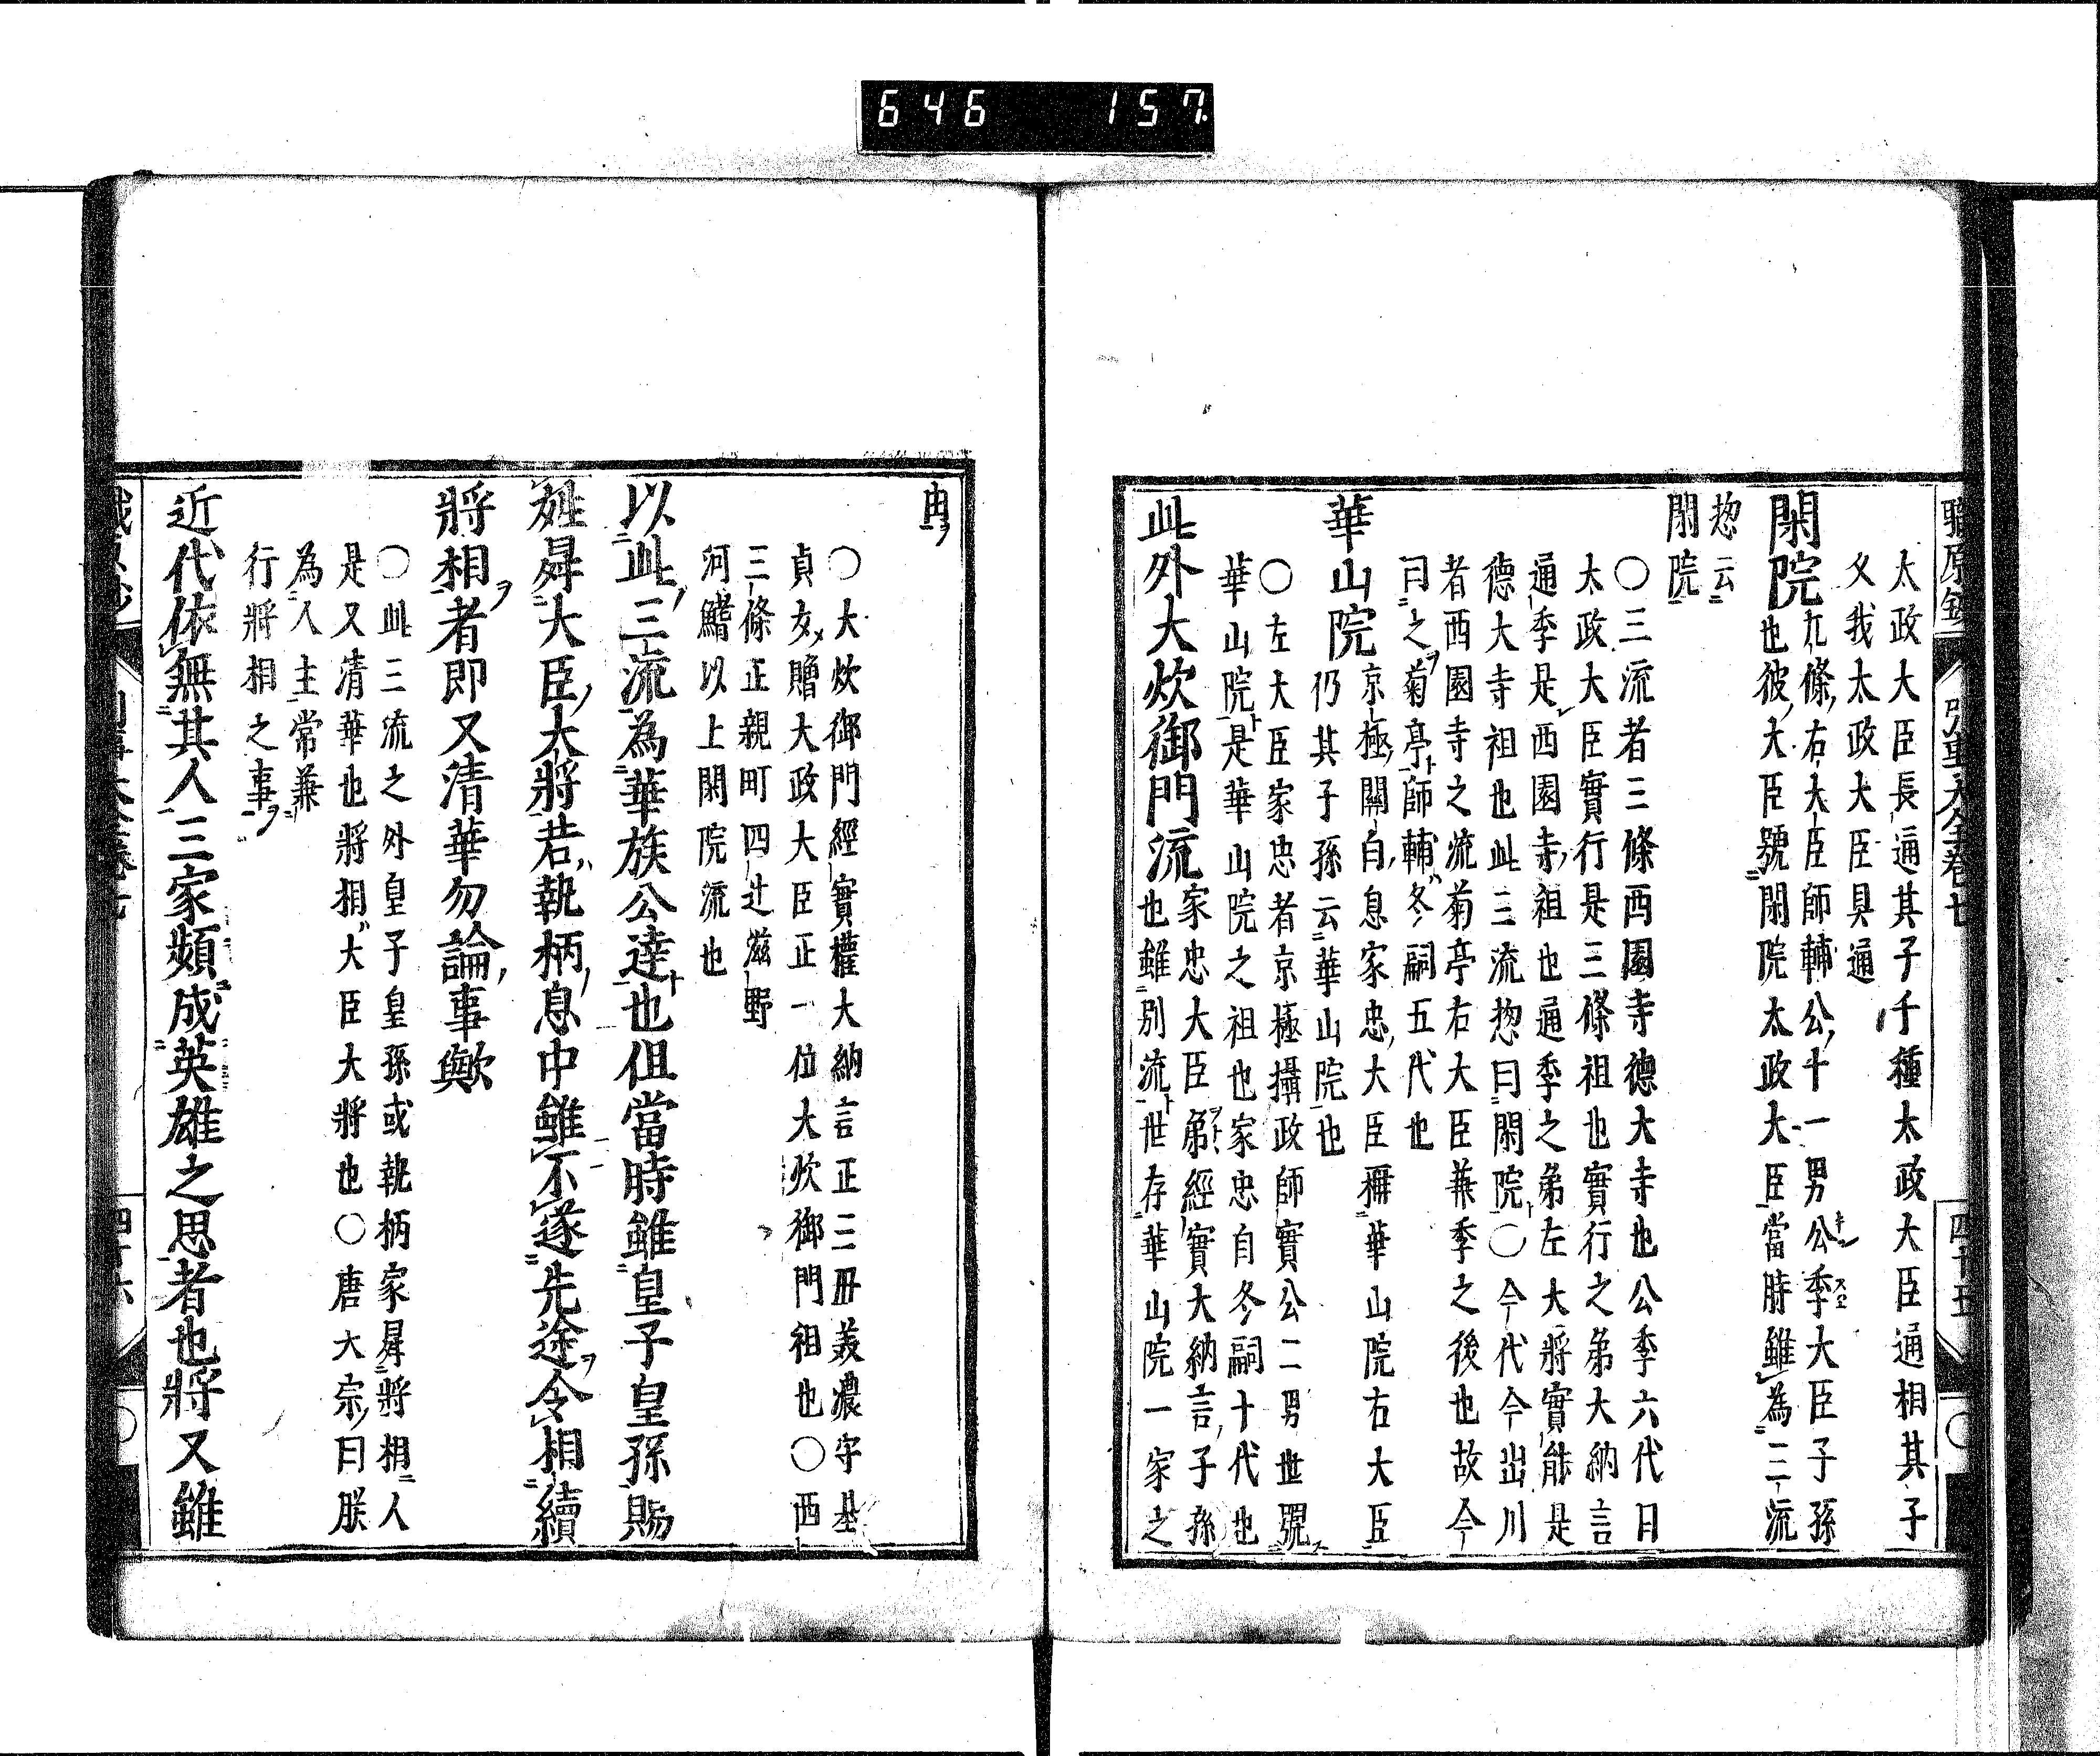 646 157
太政大臣長通其子千種太政大臣通相其子
久我太政大臣具通
閑院九條右大臣師輔公十一男公季大臣子孫
也彼大臣號閑院太政大臣當時雖為三流
惣云
閑院
〇三流者三條西園寺德大寺也公季六代曰
太政大臣實行是三條祖也實行之弟大納言
通季是西園寺祖也通季之弟左大將實能是
德大寺祖也此三流惣曰閑院〇今代今出川
者西園寺之流菊亭右大臣兼季之後也故今
曰之菊亭師輔冬嗣五代也
華山院京極關白息家忠大臣稱華山院右大臣
仍其子孫云華山院也
〇左大臣家忠者京極攝政師實公二男世號
華山院是華山院之祖也家忠自冬嗣十代也
此外大炊御門流家忠大臣弟經實大納言子孫
也雖別流世存華山院一家之
由
〇大炊御門經實權大納言正二毌美濃守基
貞女贈大政大臣正一位大炊御門祖也〇西
三條正親町四辻滋野
河鰭以上閑院流也
以此三流為華族公達也但當時雖皇子皇孫賜
姓昇大臣大將若執柄息中雖不遂先途令相續
將相者即又清華勿論事歟
〇此三流之外皇子皇孫或執柄家昇將相人
是又清華也將相大臣大將也〇唐大宗曰朕
為人主常兼
行將相之事
近代依無其人三家頗成英雄之思者也將又雖